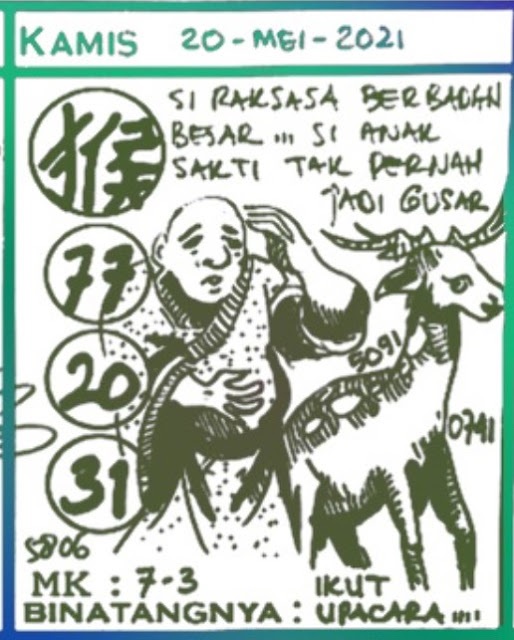 KAMIS 20-MEI-2021
SI RAKSASA BERBADAN
BESAR ... SI ANAK
SAKTI TAK PERNAH
JADI GUSAR
猴
77
20
31
5091
0741
5806
MK : 7-3
BINATANGNYA : IKUT
UPACARA ....